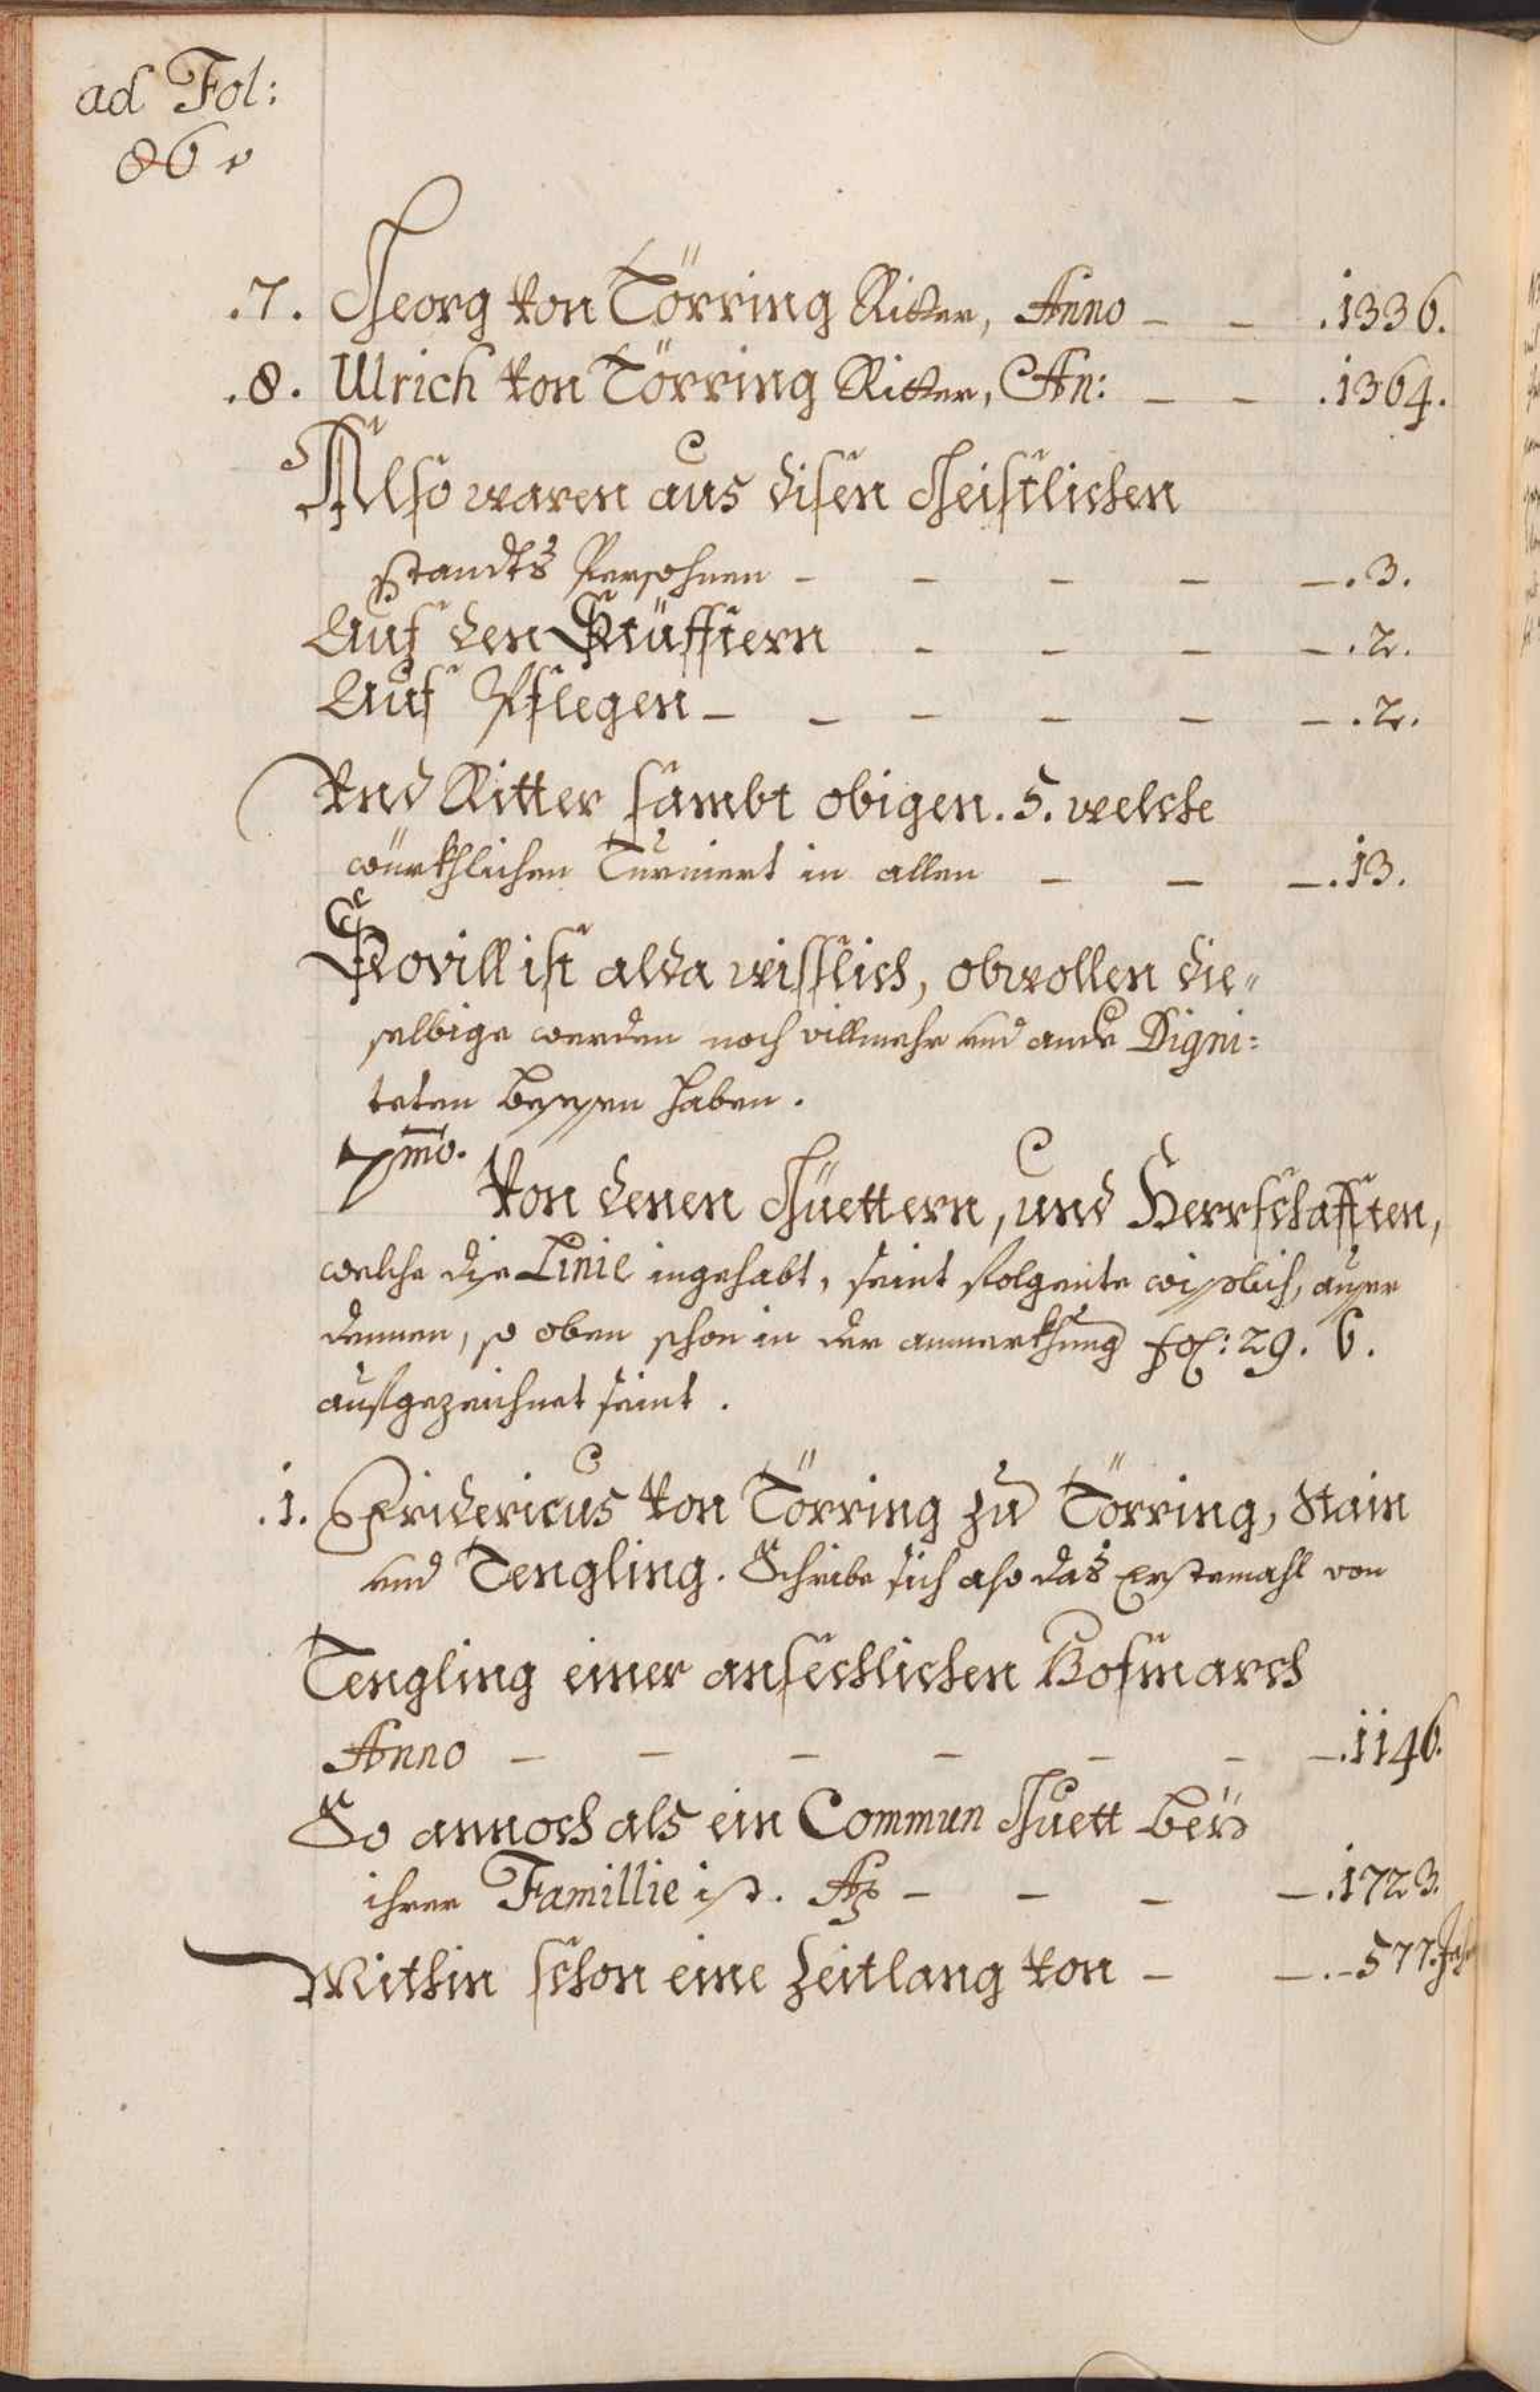 ad Fol:
86 v
.7. Georg von Törring Ritter, Anno – – .1336.
.8. Ulrich von Törring Ritter, An: – – .1364.
Also waren aus disen Geistlichen
standts Persohnen – – – – – .3.
Auf den Stüfftern – – – – .2.
Auf Pflegen – – – – – – .2.
Und Ritter sambt obigen .5. welche
würkhlichen Turniert in allen – – – .13.
Sovill ist alda wisslich, obwollen die„
selbige werden noch villmehr und ande Digni:
teten besessen haben.
7mo.
Von denen Güettern, und Herrschafften,
welche dise Linie ingehabt, seint folgente wisslich, ausser
dennen, so oben schon in der anmerkhung fol: 29. b.
aufgezeichnet seint.
.1. Fridericus von Törring zu Törring, Stain
und Tengling. Schribe sich also das Erstemahl von
Tengling einer ansechlichen Hofmarch
Anno – – – – – – – .1146.
So annoch als ein Commun Guett bey
ihrer Famillie ist. Ao – – – – .1723.
Mithin schon eine Zeitlang von – – . – 577. Jahr